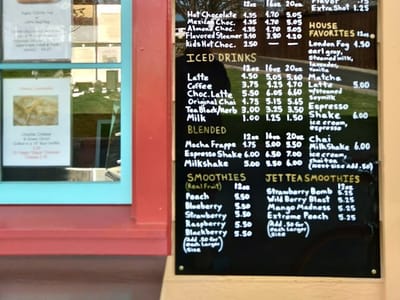 Flavor
Extra Shot 1.25
12oz 16oz 20oz
Hot Chocolate 4.35 4.70 5.05
Mexican Choc. 4.35 4.70 5.05
Almond Choc. 4.35 4.70 5.05
Flavored Steamer 3.40 3.90 4.20
Kids Hot Choc. 2.50 — —
ICED DRINKS
12oz 16oz 20oz
Latte 4.50 5.05 5.60
Coffee 3.75 4.25 4.70
Choc. Latte 5.50 6.05 6.60
Original Chai 4.75 5.15 5.65
Tea Black/Herb 3.00 3.25 3.50
Milk 1.00 1.25 1.50
BLENDED
12oz 16oz 20oz
Mocha Frappe 4.75 5.00 5.50
Espresso Shake 6.00 6.50 7.00
Milkshake 5.00 5.50 6.00
HOUSE
FAVORITES 12oz
London Fog 4.50
earl grey,
steamed milk,
lavender,
vanilla
Matcha
Latte 5.00
w/steamed
soymilk
Espresso
Shake 6.00
ice cream,
espresso
Chai
MilkShake 6.00
ice cream,
chai tea
SMOOTHIES
(Real Fruit) 12oz
Peach 5.50
Blueberry 5.50
Strawberry 5.50
Raspberry 5.50
Blackberry 5.50
(Add .50 for
each Larger
Size)
JET TEA SMOOTHIES
12oz
Strawberry Bomb 5.25
Wild Berry Blast 5.25
Mango Madness 5.25
Extreme Peach 5.25
(Add .50 for
each Larger
Size)